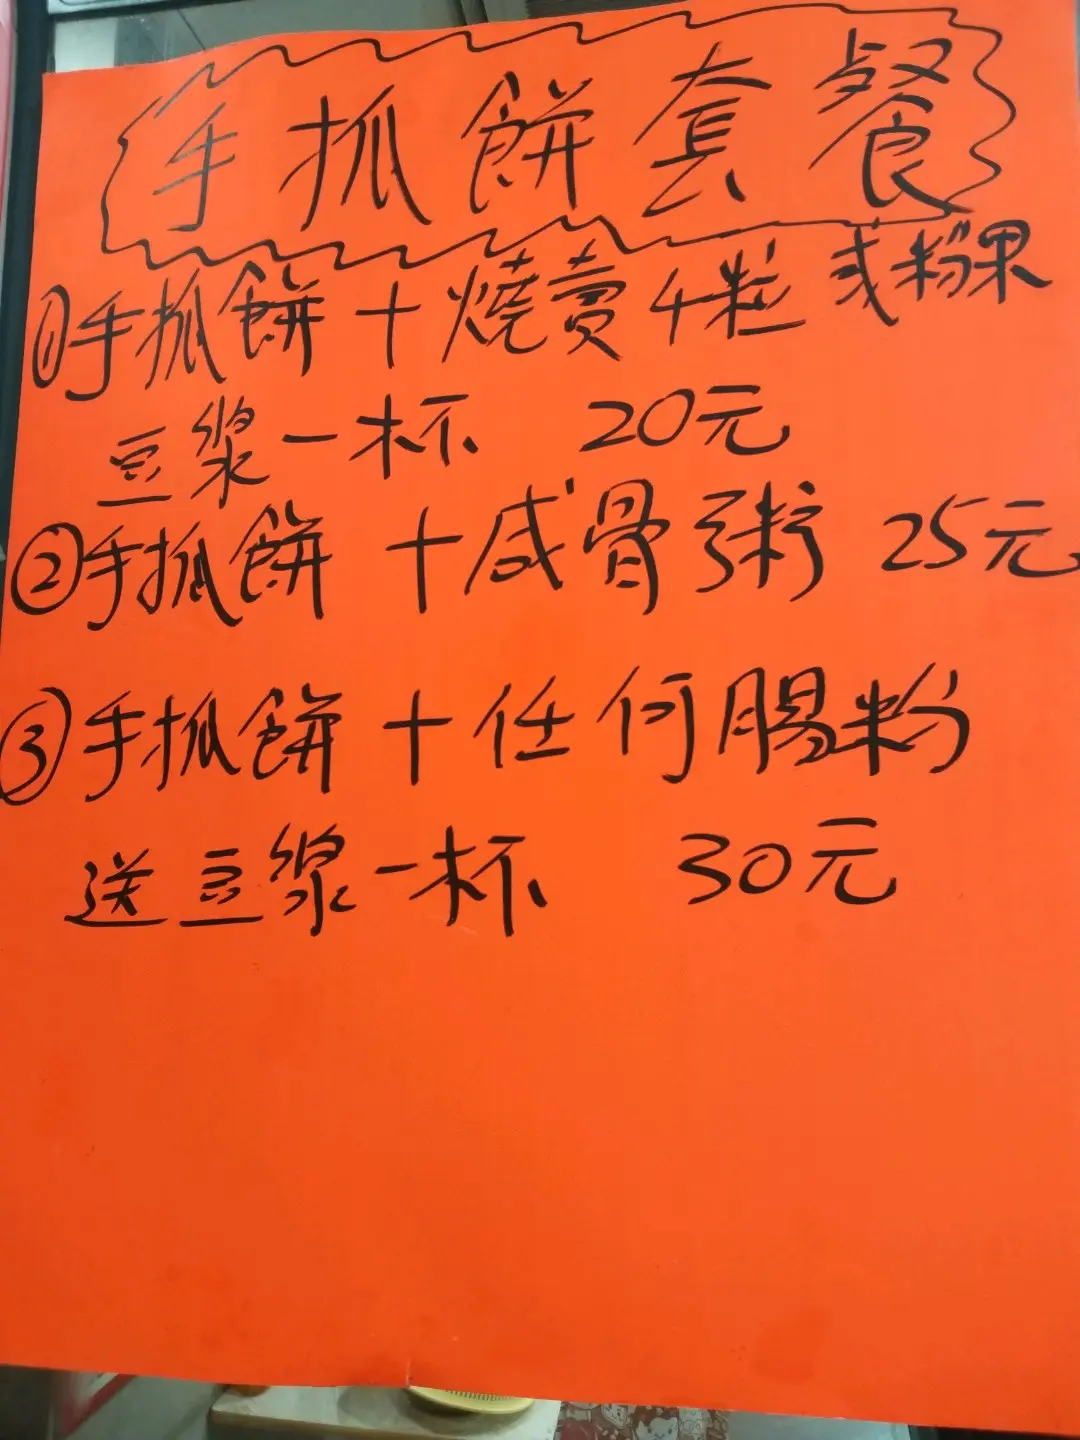 手抓餅套餐
①手抓餅+燒賣4粒或粉果
豆浆一杯 20元
②手抓餅+咸骨粥 25元
③手抓餅+任何腸粉
送豆浆一杯 30元